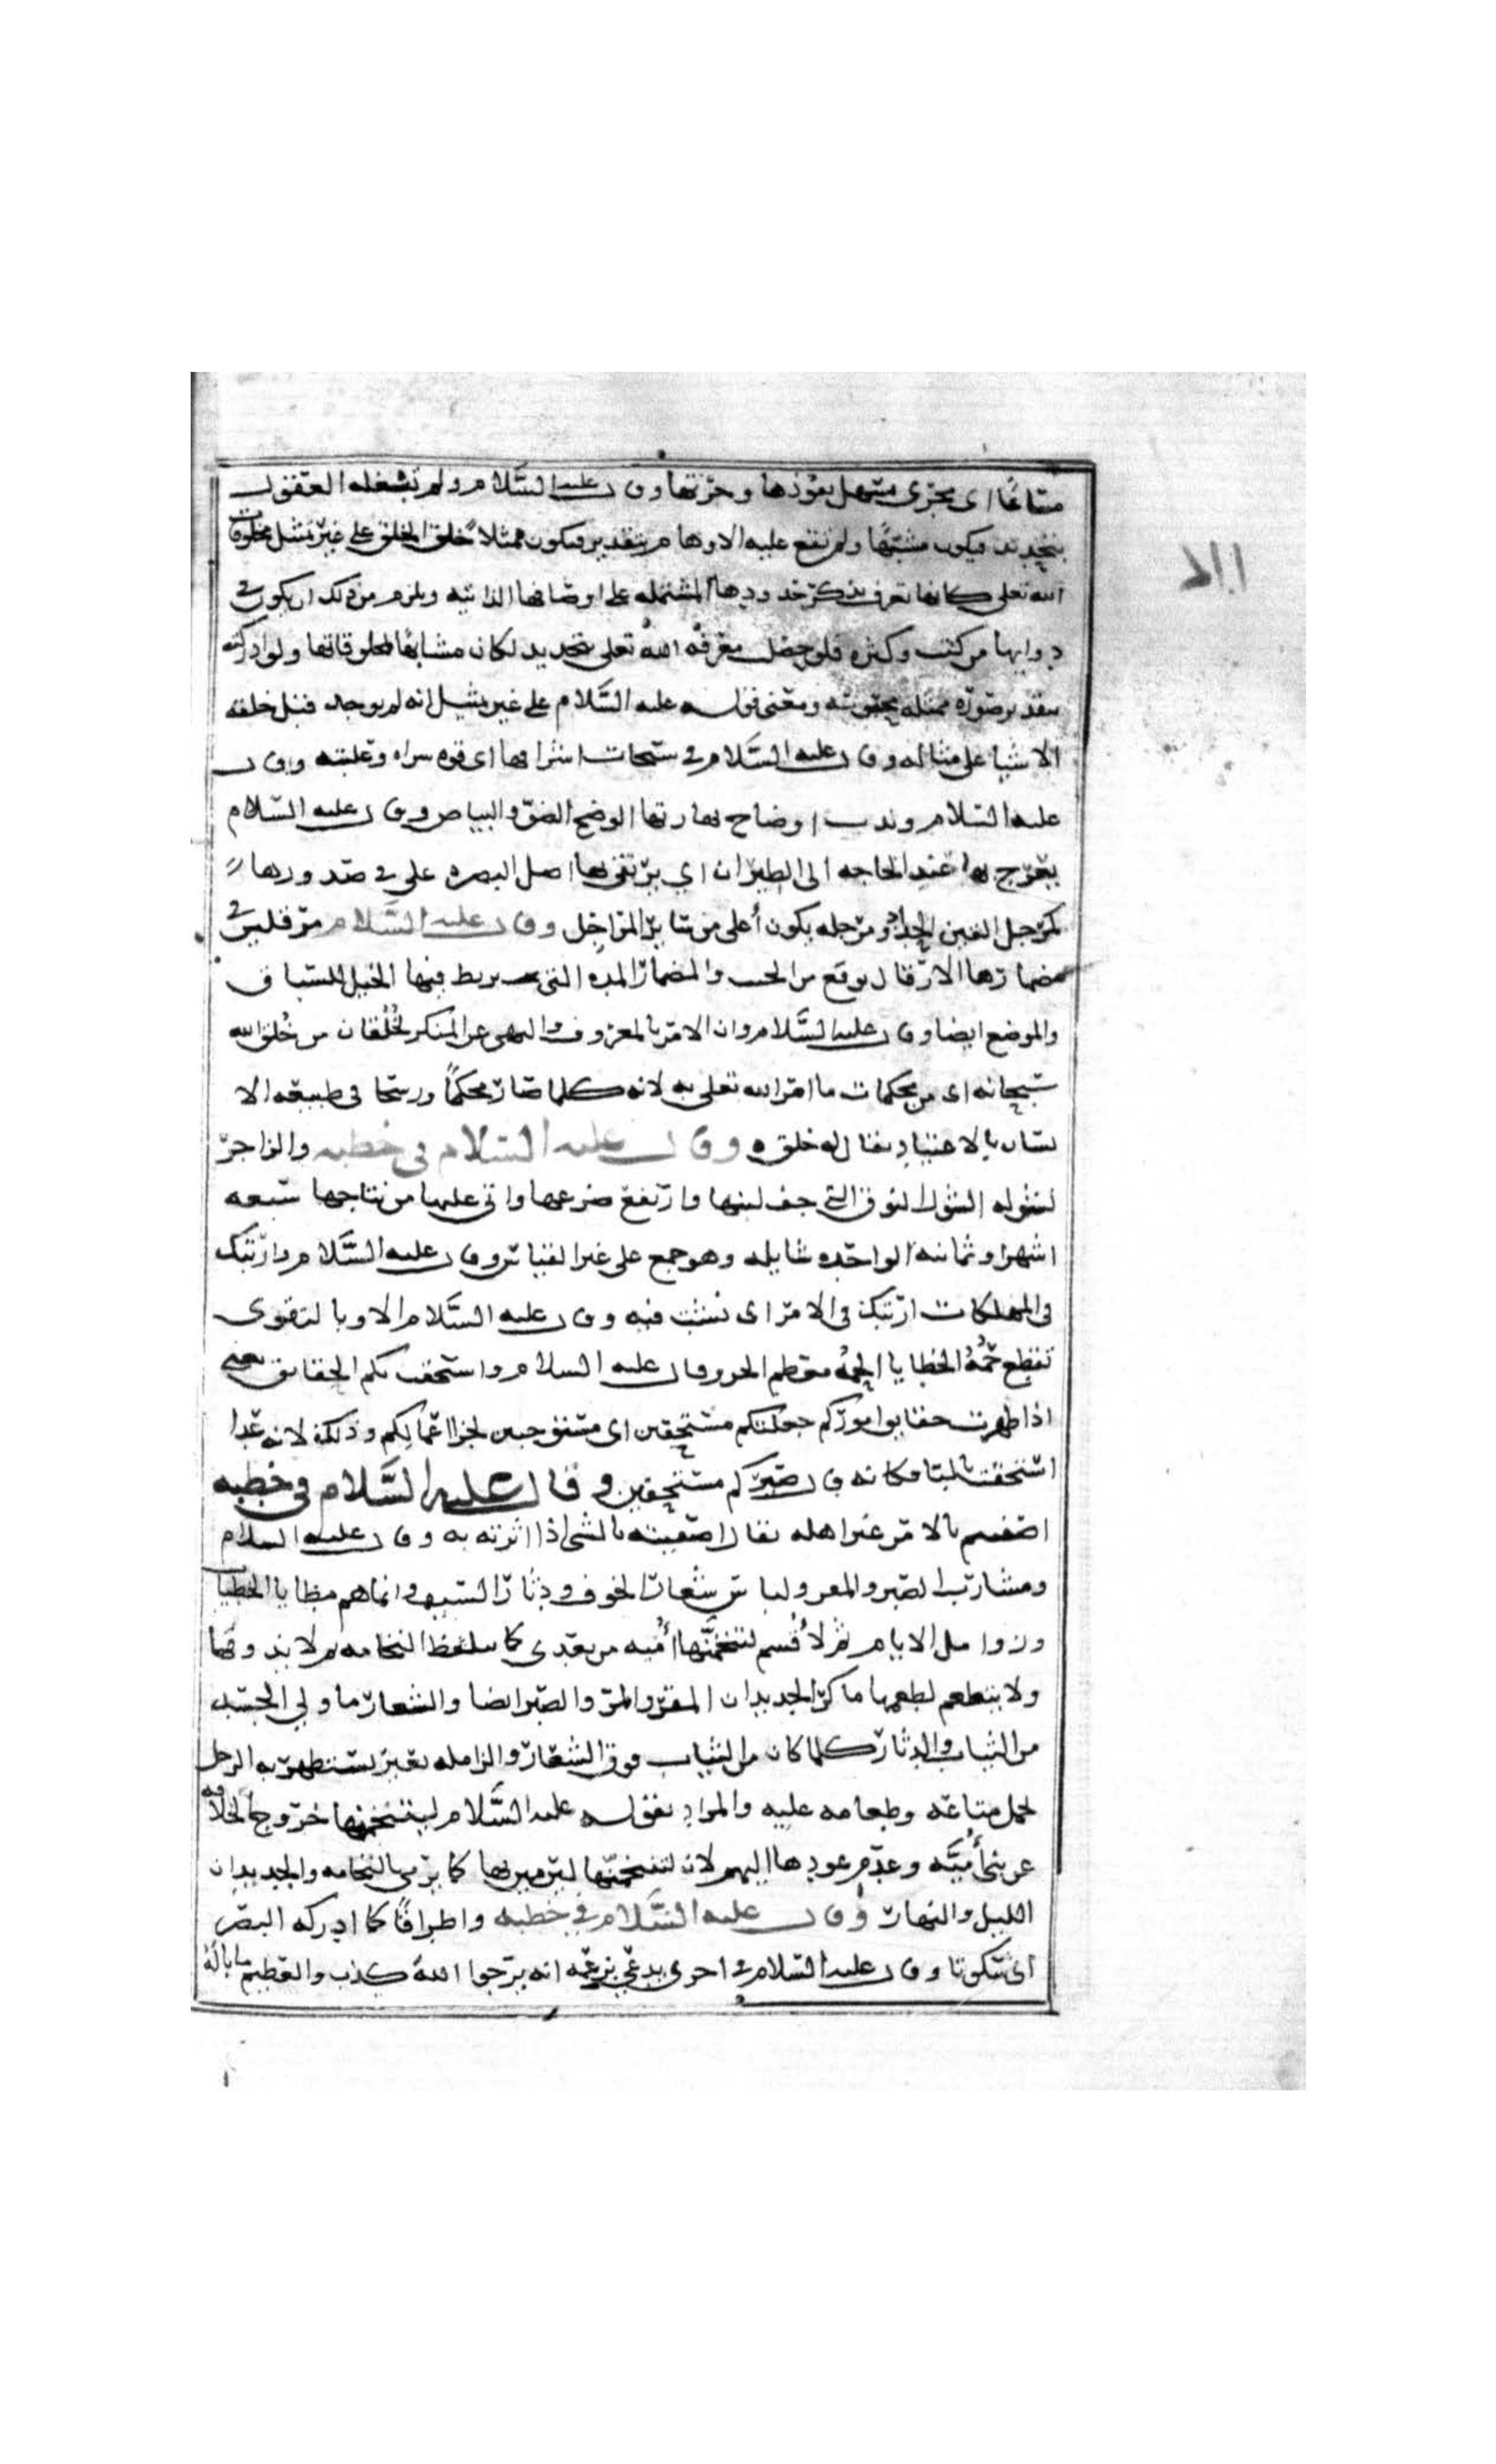 مساغا اى مجرى مسهل نفوذها وحرتها وقال عليه السلام ولم تشغله العقول
بتحديد فيكون مشبها ولم تقع عليه الاوهام بتقدير فيكون ممثلا خلق الخلق على غير تمثيل مخلوقات
الله تعلى كانها تعرف بذكر حدودها المشتمله على اوصافها الذاتيه ويلزم من ذلك ان يكون في
ذواتها مركب وكثره فلو حصلت معرفه الله تعلى بتحديد لكان مشابها لمخلوقاتها ولو ادركته
بتقدير صوره ممثله ومعنى قوله عليه السلام على غير تمثيل انه لم يوجد قبل خلقه
الاشيا على مثاله وقال عليه السلام في سبحات اشراقها اى قوه وقال
عليه السلام وندب اوضاح نهارتها الوضح الضو والبياض وقال عليه السلام
يعرج بها عند الحاجه الى الطيران اي يرتفع بها اهل البصره على في صدورها
كمرجل القين الحداد ومرجله يكون أعلى من سائر المراجل وقال عليه السلام مرقلين في
مضمارها الارقال نوع من الخبب والمضمار المده التي يربط فيها الخيل للسباق
والموضع ايضا وقال عليه السلام وان الامر بالمعروف والنهى عن المنكر لخُلُقان من خُلق الله
سبحانه اى من محكمات ما امر الله تعلى به لانه كلما صار محكما ورسخا في طبيعه الا
نسان بالاعتياد يقال له خلق وقال عليه السلام في خطبه والزاجر
لشوله الشول النوق التي جف لبنها وارتفع ضرعها واتى عليها من نتاجها سبعه
اشهر او ثمانيه الواحده شايله وهو جمع على غير القياس وقال عليه السلام وارتبك
في الهلكات ارتبك في الامر اى نشب فيه وقال عليه السلام الا وبالتقوى
تقطع حُمَةُ الخطايا الحمه معظم الحر وقال عليه السلام واستحقت بكم الحقائق يعني
اذا ظهرت حقايق اموركم جعلتكم مستحقين اى مستوجبين لجزا اعمالكم وذلك لانه عدا
استحقت بالبا فكانه قال صيركم مستحقين وقال عليه السلام في خطبه
اصفيتم بالامر غير اهله يقال اصفيته بالشى اذا اثرته به وقال عليه السلام
ومشارب الصبر والمقر ولباس شعار الخوف ودثار السيف وانما هم مطايا الخطيات
وزوامل الاثام ثم لأُقسم لتنخمنَّها أُميه من بعدى كما تلفظ النخامه ثم لا تذوقها
ولا تتطعم بطعمها ما كر الجديدان المقر المر والصبر ايضا والشعار ما ولي الجسد
من الثياب والدثار كلما كان من الثياب فوق الشعار والزامله بعير يستظهر به الرجل
لحمل متاعه وطعامه عليه والمراد بقوله عليه السلام ليتنخمنها خروج الخلافه
عن بنى أُميَّه وعدم عودها اليهم لان لتنخمنها ليرمين بها كما يرمى بالنخامه والجديدان
الليل والنهار وقال عليه السلام في خطبه واطراقًا كما ادركه البصر
اى سكوتا وقال عليه السلام في اخرى يدعي بزعمه انه يرجوا الله كذب والعظيم ما باله